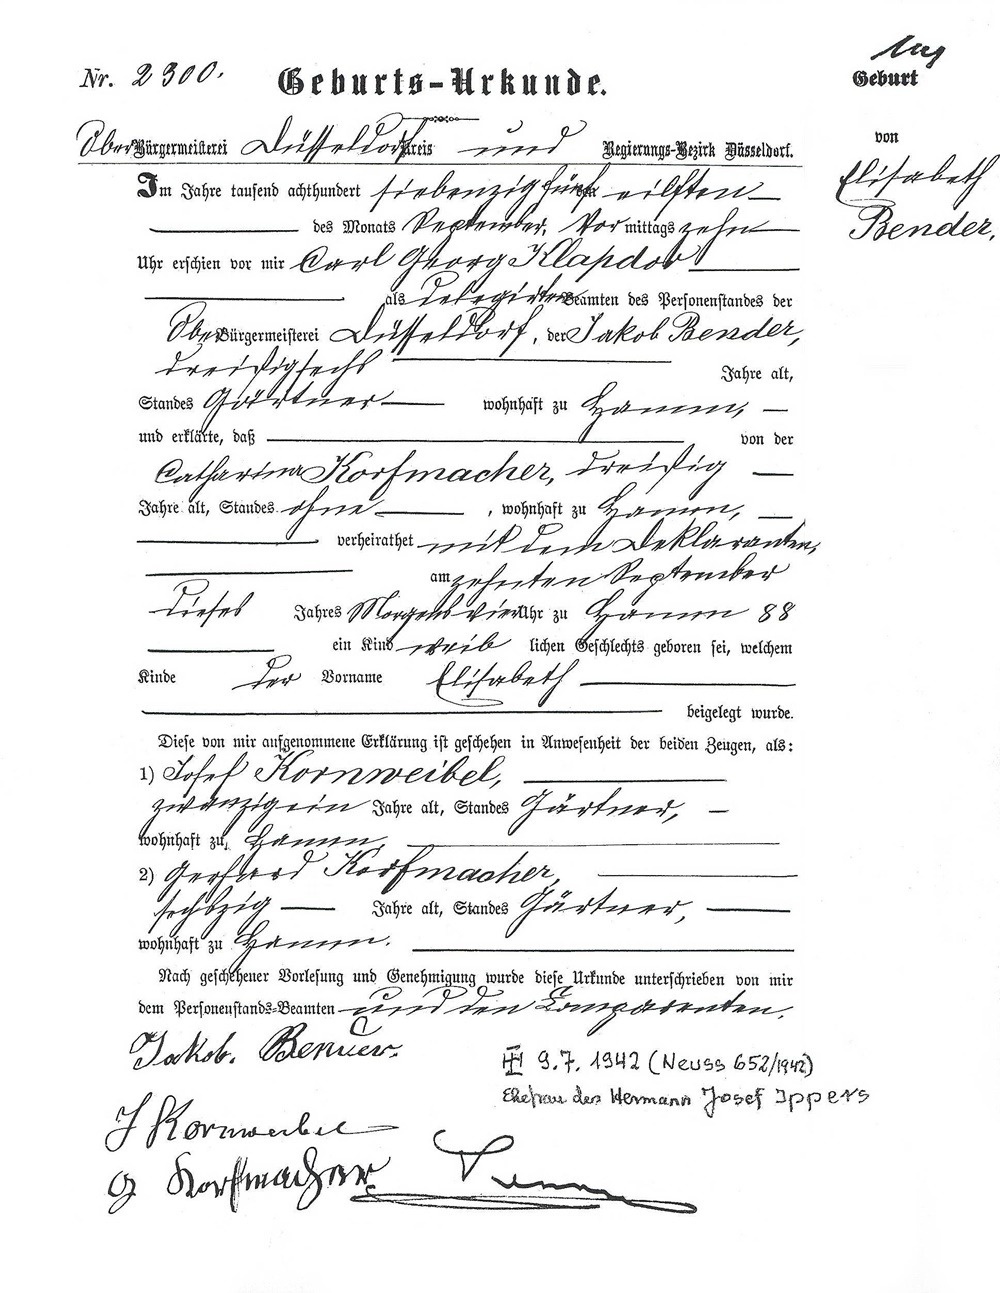 Nr. 2300. Geburts-Urkunde.
Geburt
von
Elisabeth
Bender,
Ober Bürgermeisterei Düsseldorf Kreis und Regierungs-Bezirk Düsseldorf.
Im Jahre tausend achthundert siebenzig fünf den eilften
des Monats September, Vor mittags zehn
Uhr erschien vor mir Carl Georg Klapdor
als delegirter Beamten des Personenstandes der
Ober Bürgermeisterei Düsseldorf, der Jakob Bender,
dreißigsechs Jahre alt,
Standes Gärtner wohnhaft zu Hamm,
und erklärte, daß von der
Catharina Korfmacher, dreißig
Jahre alt, Standes ohne, wohnhaft zu Hamm,
verheirathet mit dem Deklaranten,
am zehnten September
dieses Jahres Morgens vier Uhr zu Hamm 88
ein Kind weib lichen Geschlechts geboren sei, welchem
Kinde der Vorname Elisabeth
beigelegt wurde.
Diese von mir aufgenommene Erklärung ist geschehen in Anwesenheit der beiden Zeugen, als:
1) Josef Kornweibel,
zwanzigein Jahre alt, Standes Gärtner,
wohnhaft zu, Hamm,
2) Gerhard Korfmacher,
sechszig Jahre alt, Standes Gärtner,
wohnhaft zu Hamm.
Nach geschehener Vorlesung und Genehmigung wurde diese Urkunde unterschrieben von mir
dem Personenstands-Beamten und den Comparenten.
Jakob. Bender.
9.7.1942 (Neuss 652/1942)
Ehefrau des Hermann Josef Ippers
J Kornweibel
G Korfmacher